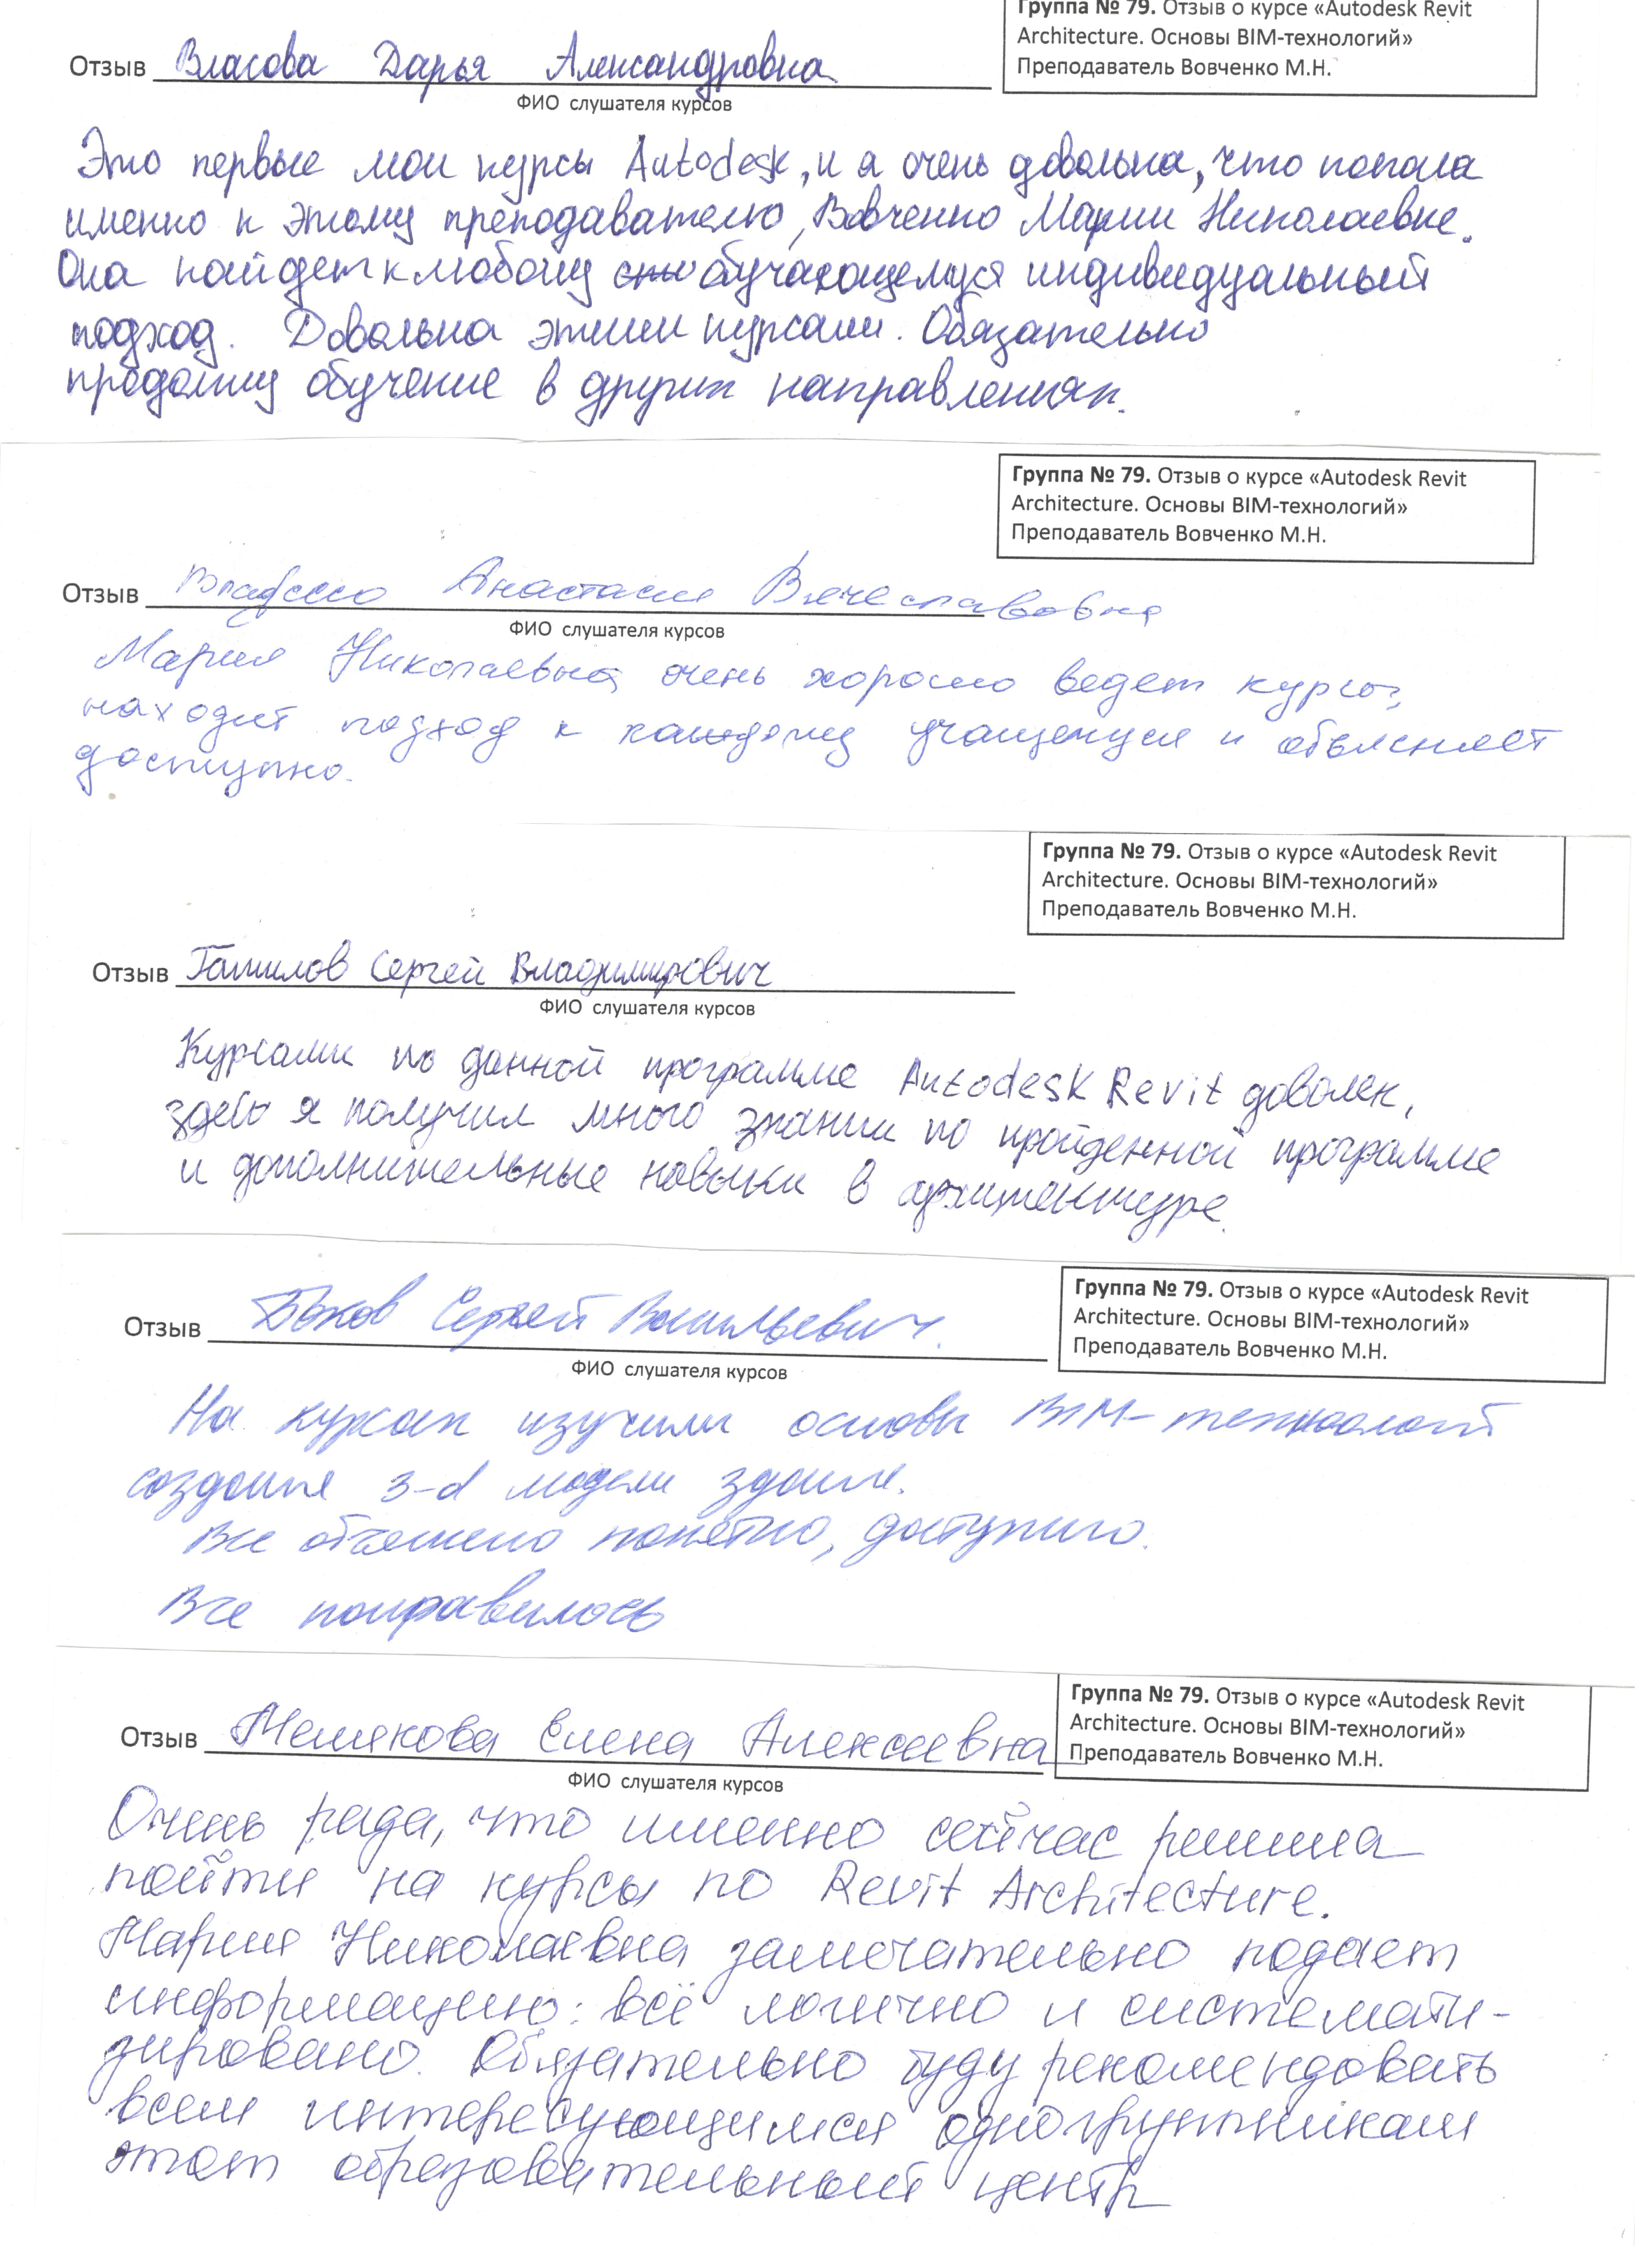 Группа № 79. Отзыв о курсе «Autodesk Revit
Architecture. Основы BIM-технологий»
Преподаватель Вовченко М.Н.
Отзыв Власова Дарья Александровна
ФИО слушателя курсов
Это первые мои курсы Autodesk, и я очень довольна, что попала
именно к этому преподавателю, Вовченко Марии Николаевне.
Она найдет к любому обучающемуся индивидуальный
подход. Довольна этими курсами. Обязательно
продолжу обучение в других направлениях.
Группа № 79. Отзыв о курсе «Autodesk Revit
Architecture. Основы BIM-технологий»
Преподаватель Вовченко М.Н.
Отзыв Анастасия Вячеславовна
ФИО слушателя курсов
Мария Николаевна очень хорошо ведет курсы,
находит подход к каждому учащемуся и объясняет
доступно.
Группа № 79. Отзыв о курсе «Autodesk Revit
Architecture. Основы BIM-технологий»
Преподаватель Вовченко М.Н.
Отзыв Сергей Владимирович
ФИО слушателя курсов
Курсами по данной программе Autodesk Revit доволен,
здесь я получил много знании по пройденной программе
и дополнительные навыки в архитектуре.
Группа № 79. Отзыв о курсе «Autodesk Revit
Architecture. Основы BIM-технологий»
Преподаватель Вовченко М.Н.
Отзыв Сергей Васильевич.
ФИО слушателя курсов
На курсах изучили основы BIM-технологий
создания 3-d модели здания.
Все объяснено понятно, доступно.
Все понравилось
Группа № 79. Отзыв о курсе «Autodesk Revit
Architecture. Основы BIM-технологий»
Преподаватель Вовченко М.Н.
Отзыв Елена Алексеевна
ФИО слушателя курсов
Очень рада, что именно сейчас решила
пойти на курсы по Revit Architecture.
Мария Николаевна замечательно подает
информацию: всё логично и системати-
зировано. Обязательно буду рекомендовать
всем интересующимся одногруппникам
этот образовательный центр